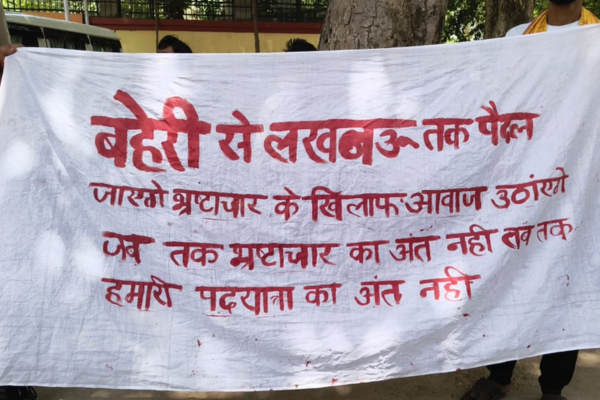 बहेरी से लखनऊ तक पैदल
जाएगे भ्रष्टाचार के खिलाफ आवाज उठांएगे
जब तक भ्रष्टाचार का अंत नही तब तक
हमारी पदयात्रा का अंत नही